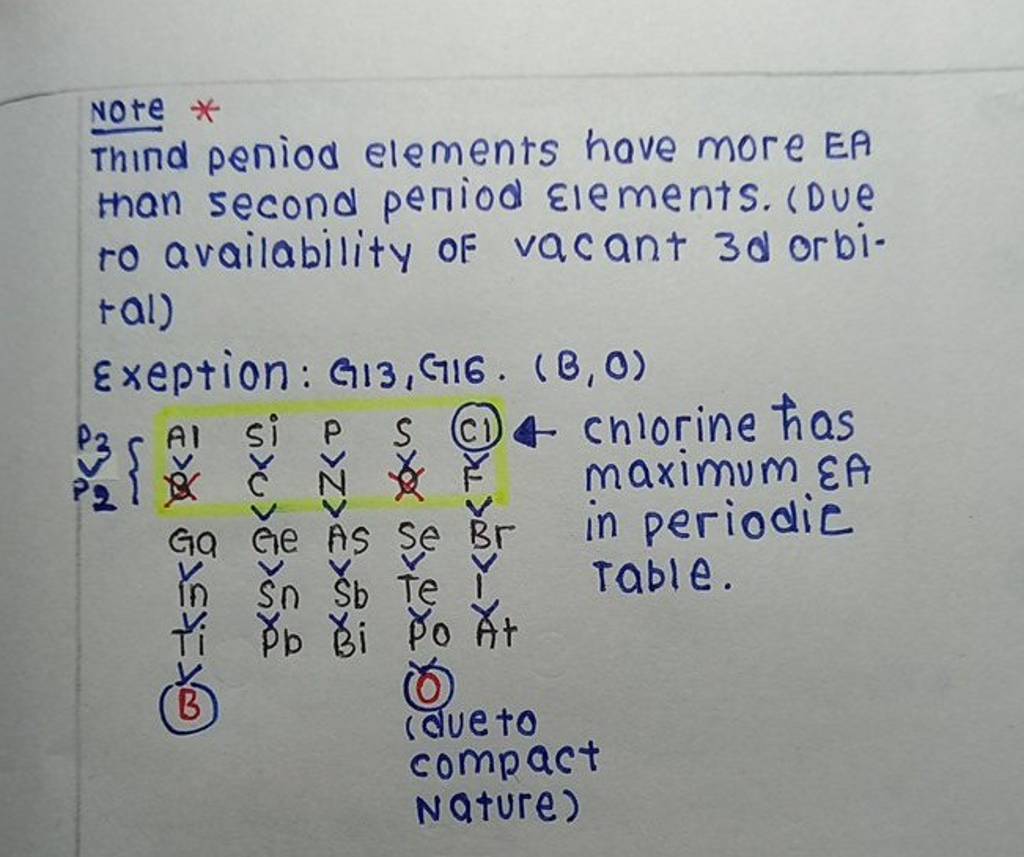 Note *
Third period elements have more EA
than second period Elements. (Due
to availability of vacant 3d orbi-
tal)
Exeption: G13, G16. (B, O)
P3 > P2 { Al > B Si > C > P > N > S > O Cl > F >
chlorine has
maximum EA
in periodic
Table.
Ga Ge As Se Br
In Sn Sb Te I
Ti Pb Bi Po At
B O
(due to
compact
Nature)